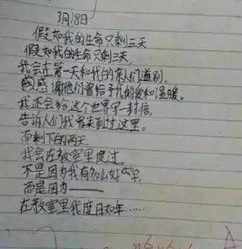 3月18日
假如我的生命只剩三天
假如我的生命只剩三天
我会在第一天和我的家人们道别,
感恩他们曾给予我的爱和温暖。
我还会给这个世界写一封信,
告诉人们我曾来到过这里。
而剩下的两天
我会在教室里度过。
不是因为我有多么好学
而是因为——
在教室里我度日如年……